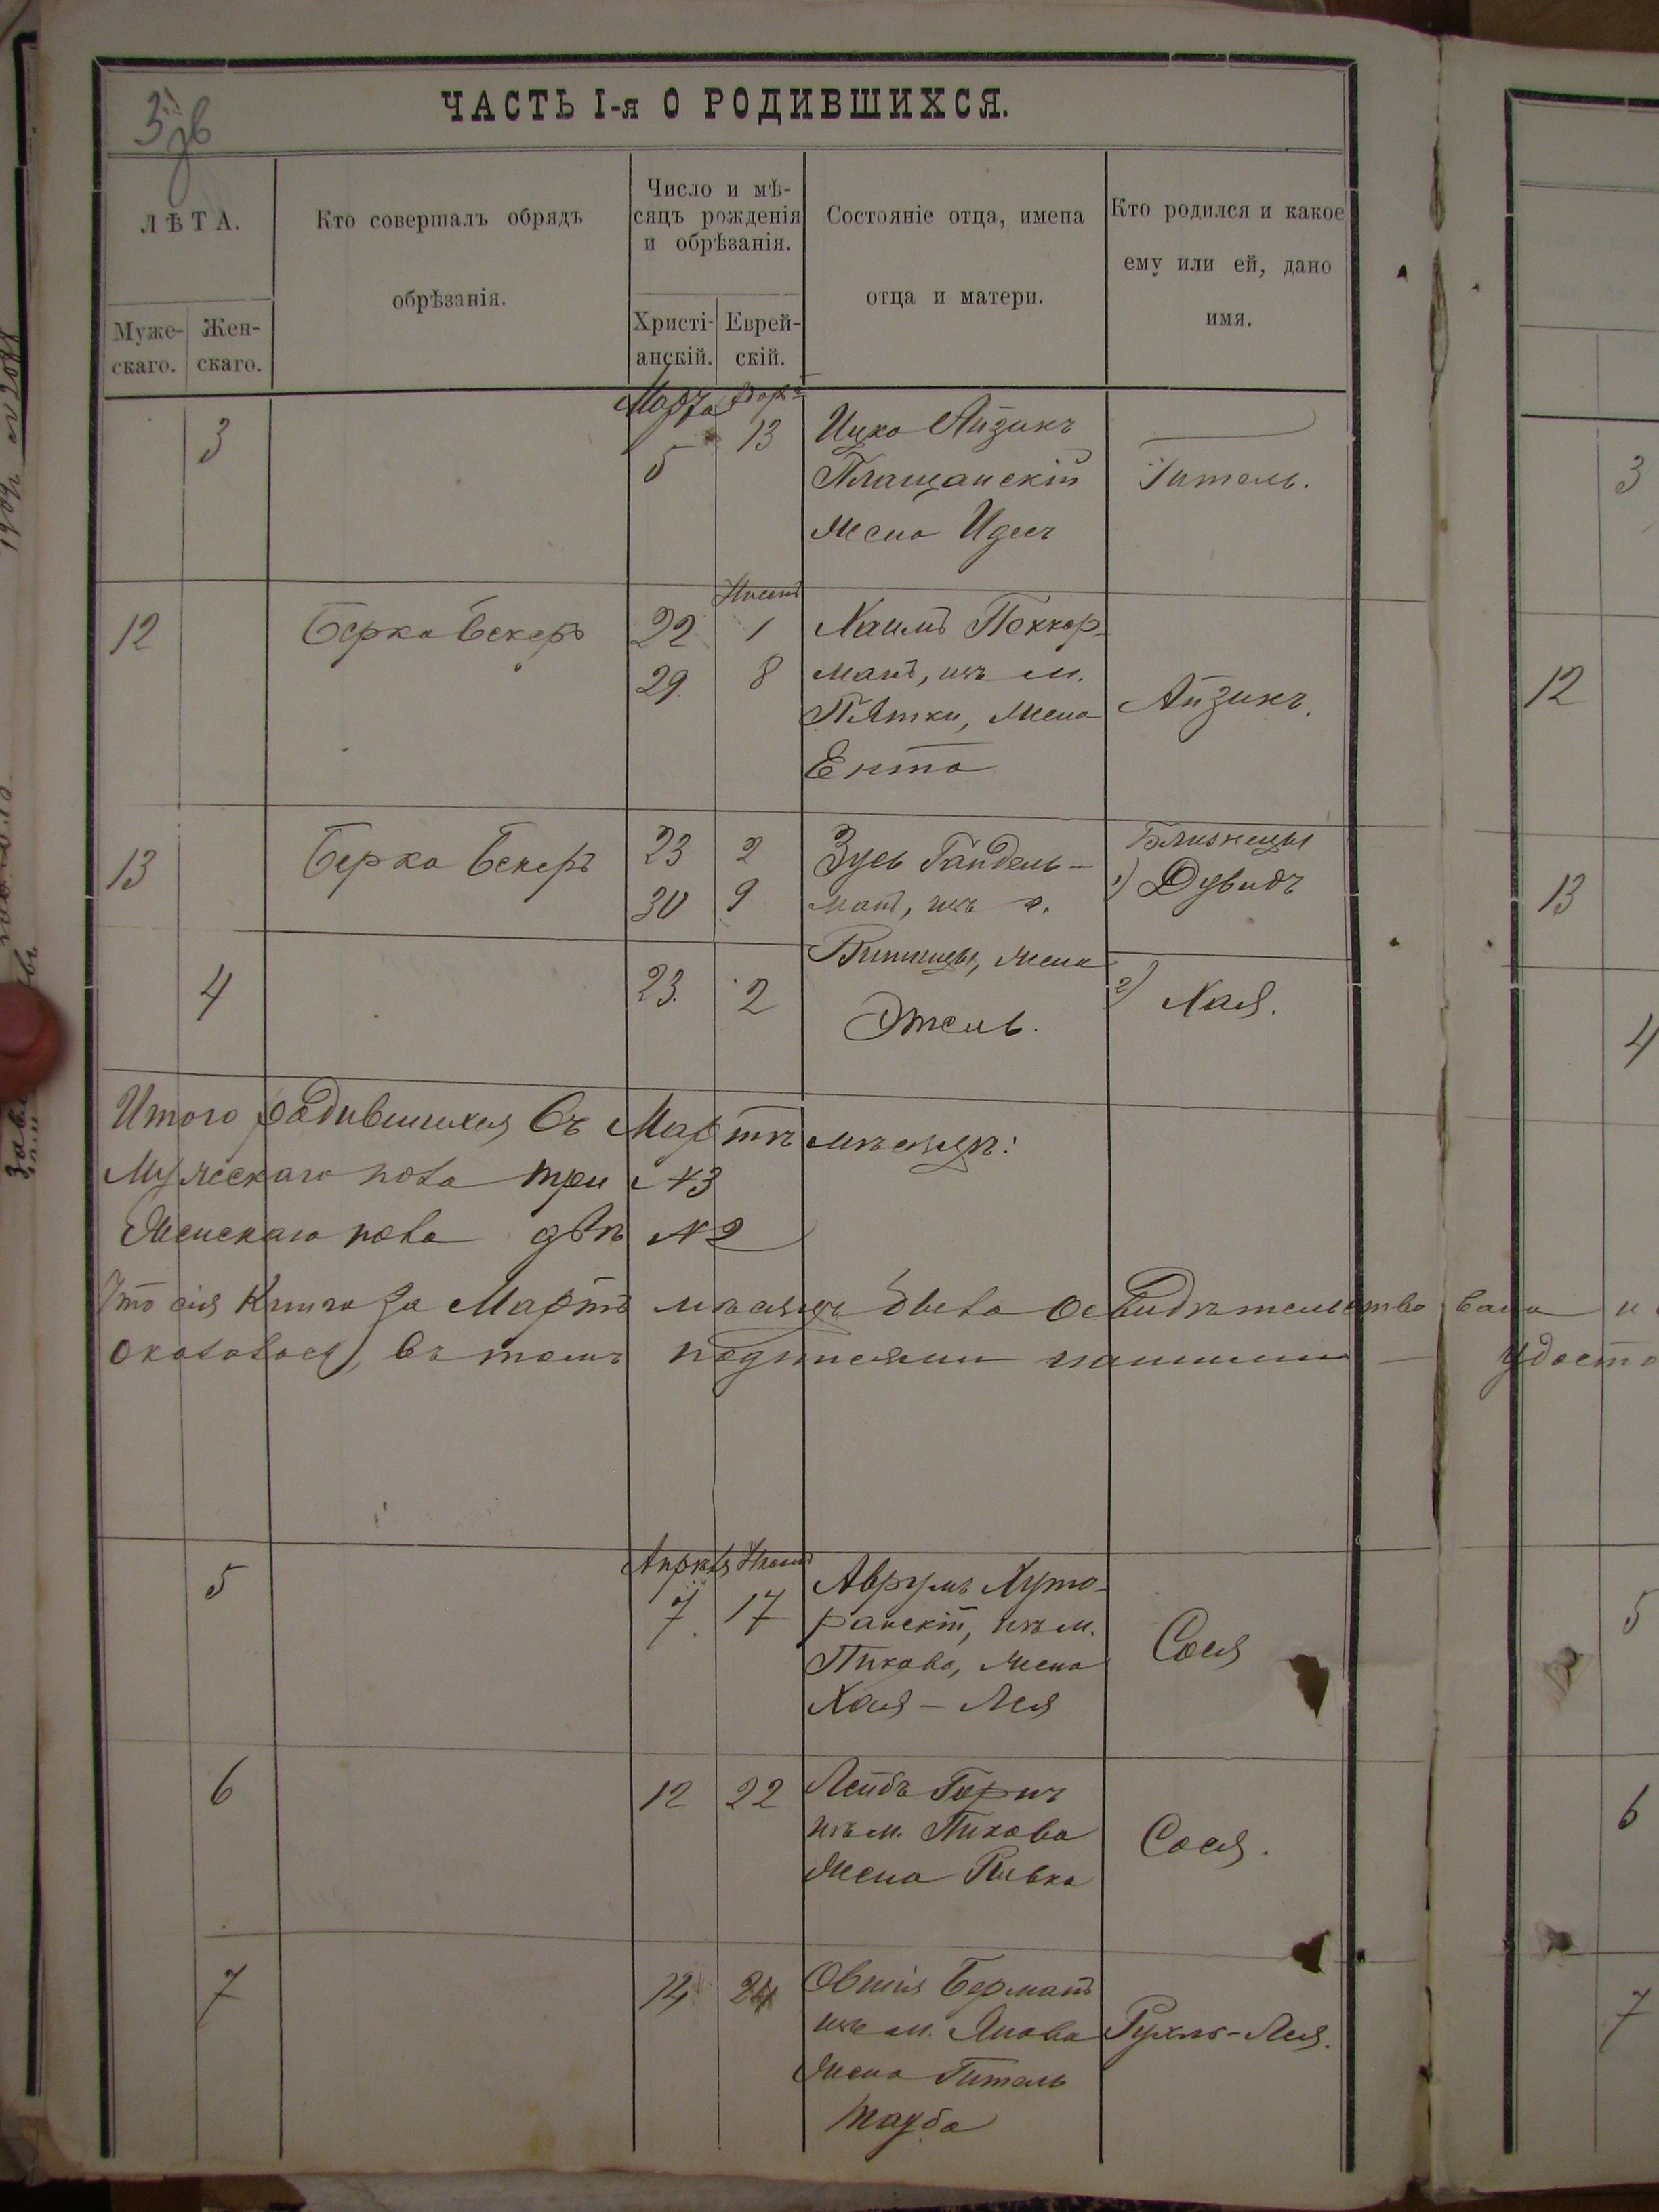 ЧАСТЬ I-я О РОДИВШИХСЯ.
ЛѢТА.
Муже-
скаго.
Жен-
скаго.
Кто совершалъ обрядъ
обрѣзанія.
Число и мѣ-
сяцъ рожденія
и обрѣзанія.
Христі-
анскій.
Еврей-
скій.
Состояніе отца, имена
отца и матери.
Кто родился и какое
ему или ей, дано
имя.
3
Марта
5
13
Ицко Айзикъ
Плащанскій
жена Идесъ
Гитель.
12
Берко Бекеръ
22
29
Нисенъ
1
8
Хаимъ Поккор-
манъ, изъ м.
Пятки, жена
Ента
Айзикъ.
13
Берко Бекеръ
23 2
30 9
Зусь Гандель-
манъ, изъ г.
Винницы, жена
Этель.
Близнецы
1) Дувидъ
4
23. 2
2) Хая.
Итого родившихся въ Мартѣ мѣсяцѣ:
Мужескаго пола три №3
Женскаго пола двѣ №2
Что сія книга за Мартъ мѣсяцъ была освидѣтельствована и
оказалось, въ томъ подписями нашими — удосто
5
Апрѣля
7
Нисенъ
17
Аврумъ Хуто-
ранскій, изъ м.
Пикова, жена
Хая-Лея
Сося
6
12 22
Лейбъ Горич
изъ м. Пикова
жена Ривка
Сося.
7
14 24
Овшія Берманъ
изъ м. Янова
жена Гитель
Тауба
Рухль-Лея.
3
12
13
4
5
6
7